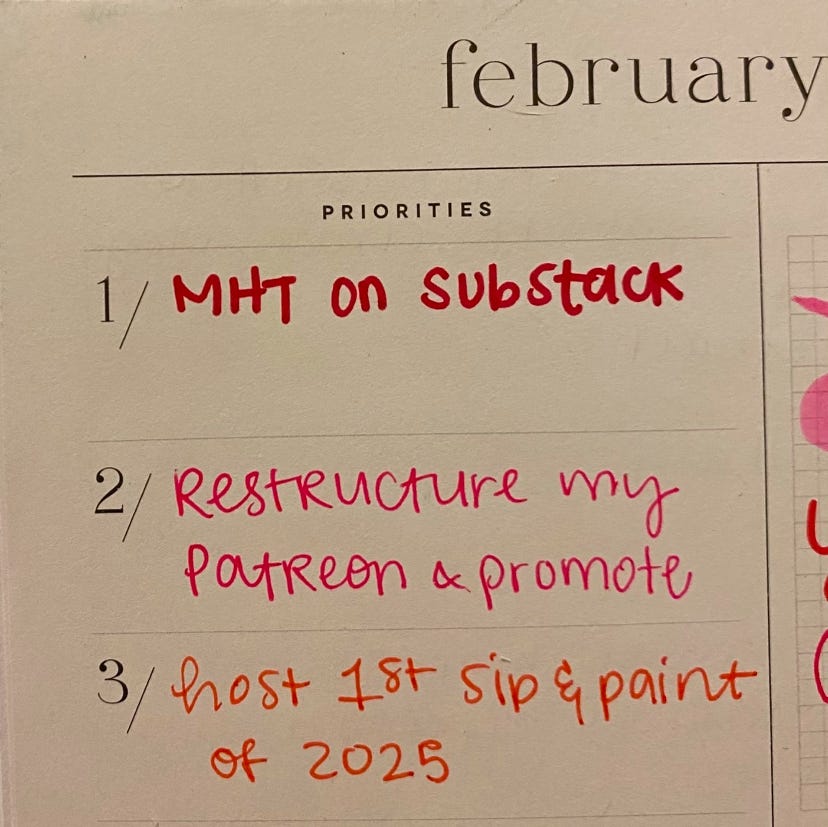 february
PRIORITIES
1/ MHT on Substack
2/ Restructure my
Patreon & promote
3/ host 1st sip & paint
of 2025